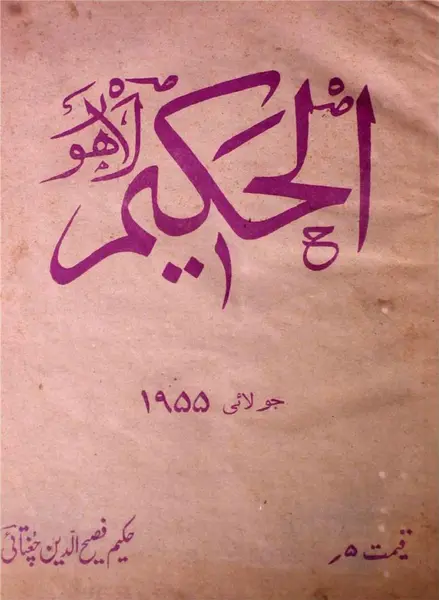 الحکیم لاہور
جولائی ۱۹۵۵
قیمت ۵؍
حکیم فصیح الدین چغتائی